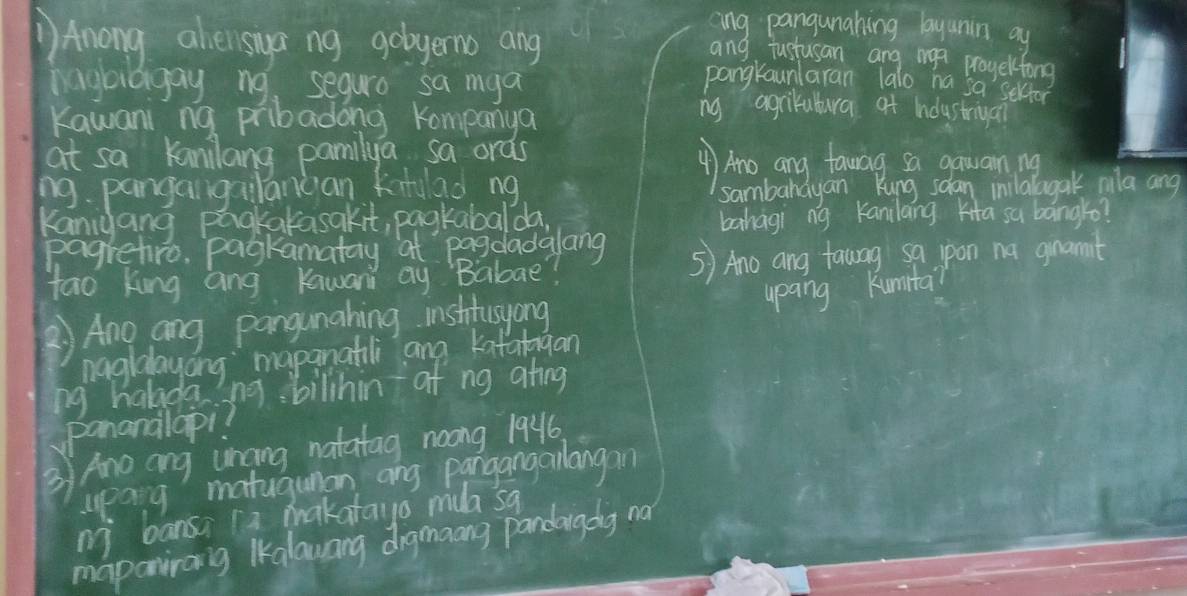 1) Anong ahensiya ng gobyerno ang
nagbibigay ng seguro sa mga
kawani ng pribadong kompanya
at sa kanilang pamilya sa oras
ng pangangailangan katulad ng
kaniyang pagkakasakit, pagkabalda,
pagretiro. pagkamatay at pagdadalang
tao kung ang kawani ay Babae?
2) Ano ang pangunahing institusyong
naglalayong mapanatili ang katatagan
ng halaga ng bilihin at ng ating
pananalapi?
3) Ano ang unang natatag noong 1946
upang matugunan ang pangangailangan
ng bansa na makatayo mula sa
mapanirang Ikalawang digmaang pandaigdig na
ang pangunahing layunin ay
ang tustusan ang mga proyektong
pangkaunlaran lalo na sa sektor
ng agrikultura at industriya?
4) Ano ang tawag sa gawain ng
sambahayan kung saan inilalagak nila ang
bahagi ng kanilang kita sa bangko?
5) Ano ang tawag sa ipon na ginamit
upang kumita?